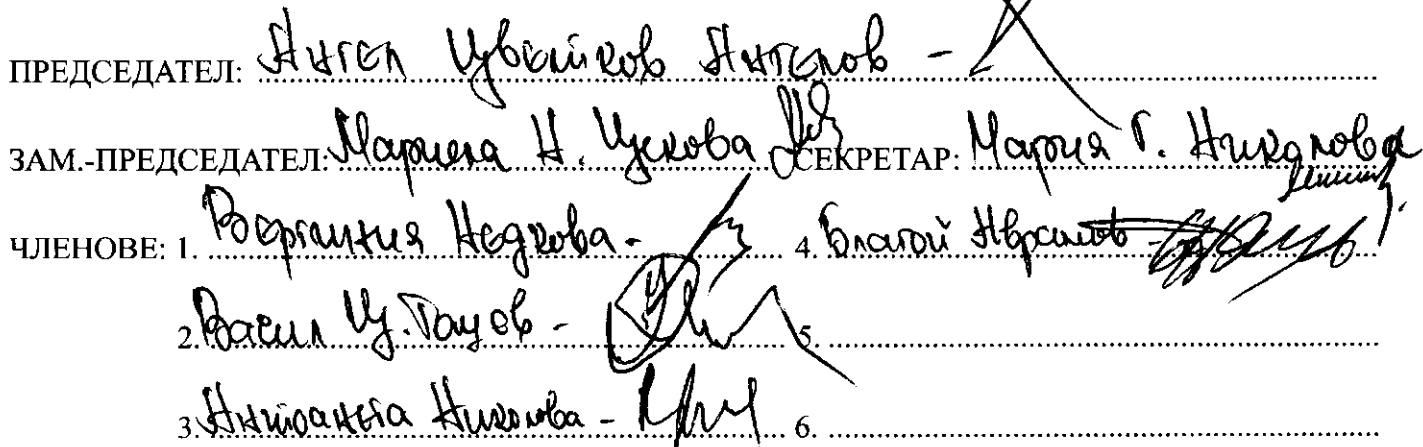 ПРЕДСЕДАТЕЛ: Ангел Цветков Ангелов -
ЗАМ.-ПРЕДСЕДАТЕЛ: Мариела Н. Цекова СЕКРЕТАР: Мария Г. Николова
ЧЛЕНОВЕ: 1. Вергиния Недкова - 4. Благой Аврамов -
2. Васил Ц. Гацов - 5.
3. Антоанета Николова - 6.